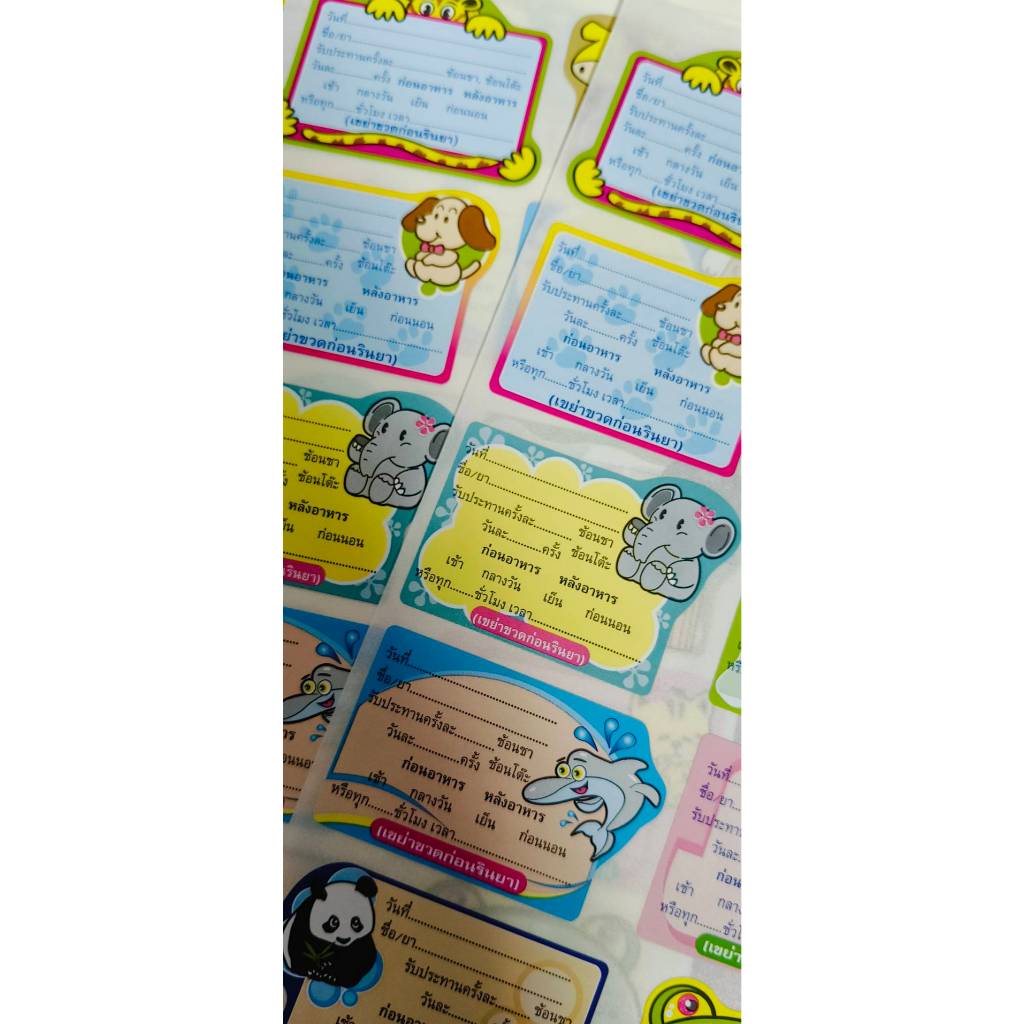 วันที่
ชื่อ/ยา
รับประทานครั้งละ ช้อนชา, ช้อนโต๊ะ
วันละ ครั้ง ก่อนอาหาร หลังอาหาร
เช้า กลางวัน เย็น ก่อนนอน
หรือทุก ชั่วโมง เวลา
(เขย่าขวดก่อนรินยา)
วันที่
ชื่อ/ยา
รับประทานครั้งละ
วันละ ครั้ง
เช้า กลางวัน เย็น
หรือทุก ชั่วโมง เวลา
ช้อนชา
ครั้ง ช้อนโต๊ะ
หลังอาหาร
กลางวัน เย็น ก่อนนอน
ชั่วโมง เวลา
วันที่
ชื่อ/ยา
รับประทานครั้งละ ช้อนชา
วันละ ครั้ง ช้อนโต๊ะ
ก่อนอาหาร หลังอาหาร
เช้า กลางวัน เย็น ก่อนนอน
หรือทุก ชั่วโมง เวลา
(เขย่าขวดก่อนรินยา)
ช้อนชา
ช้อนโต๊ะ
หลังอาหาร
ก่อนนอน
วันที่
ชื่อ/ยา
รับประทานครั้งละ ช้อนชา
วันละ ครั้ง ช้อนโต๊ะ
ก่อนอาหาร หลังอาหาร
เช้า กลางวัน เย็น ก่อนนอน
หรือทุก ชั่วโมง เวลา
(เขย่าขวดก่อนรินยา)
วันที่
ชื่อ/ยา
รับประทานครั้งละ ช้อนชา
วันละ ครั้ง ช้อนโต๊ะ
ก่อนอาหาร หลังอาหาร
เช้า กลางวัน เย็น ก่อนนอน
หรือทุก ชั่วโมง เวลา
(เขย่าขวดก่อนรินยา)
วันที่
ชื่อ/ยา
วันละ
เช้า
หรือทุก
วันที่
ชื่อ/ยา
รับประทานครั้งละ ช้อนชา
วันละ ครั้ง